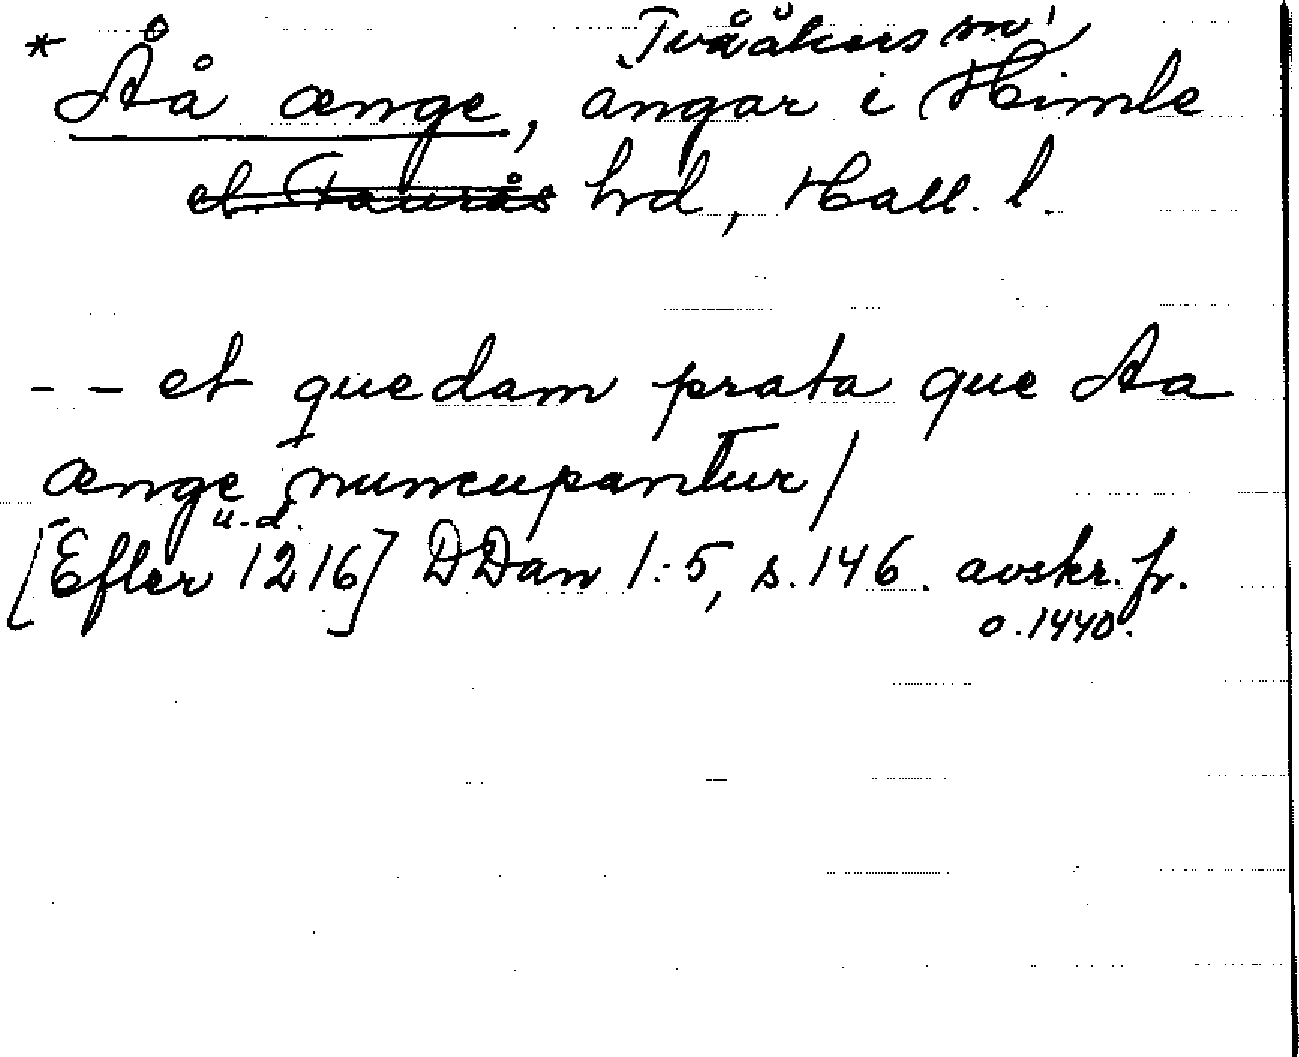 Tvååkers sn
* Åå ænge, ängar i Himle
el. Faurås hrd, Hall. l.
- - et quedam prata que Aa
ænge nuncupantur/
u.d.
[Efter 1216] DDan 1:5, s.146. avskr. fr.
o.1440.